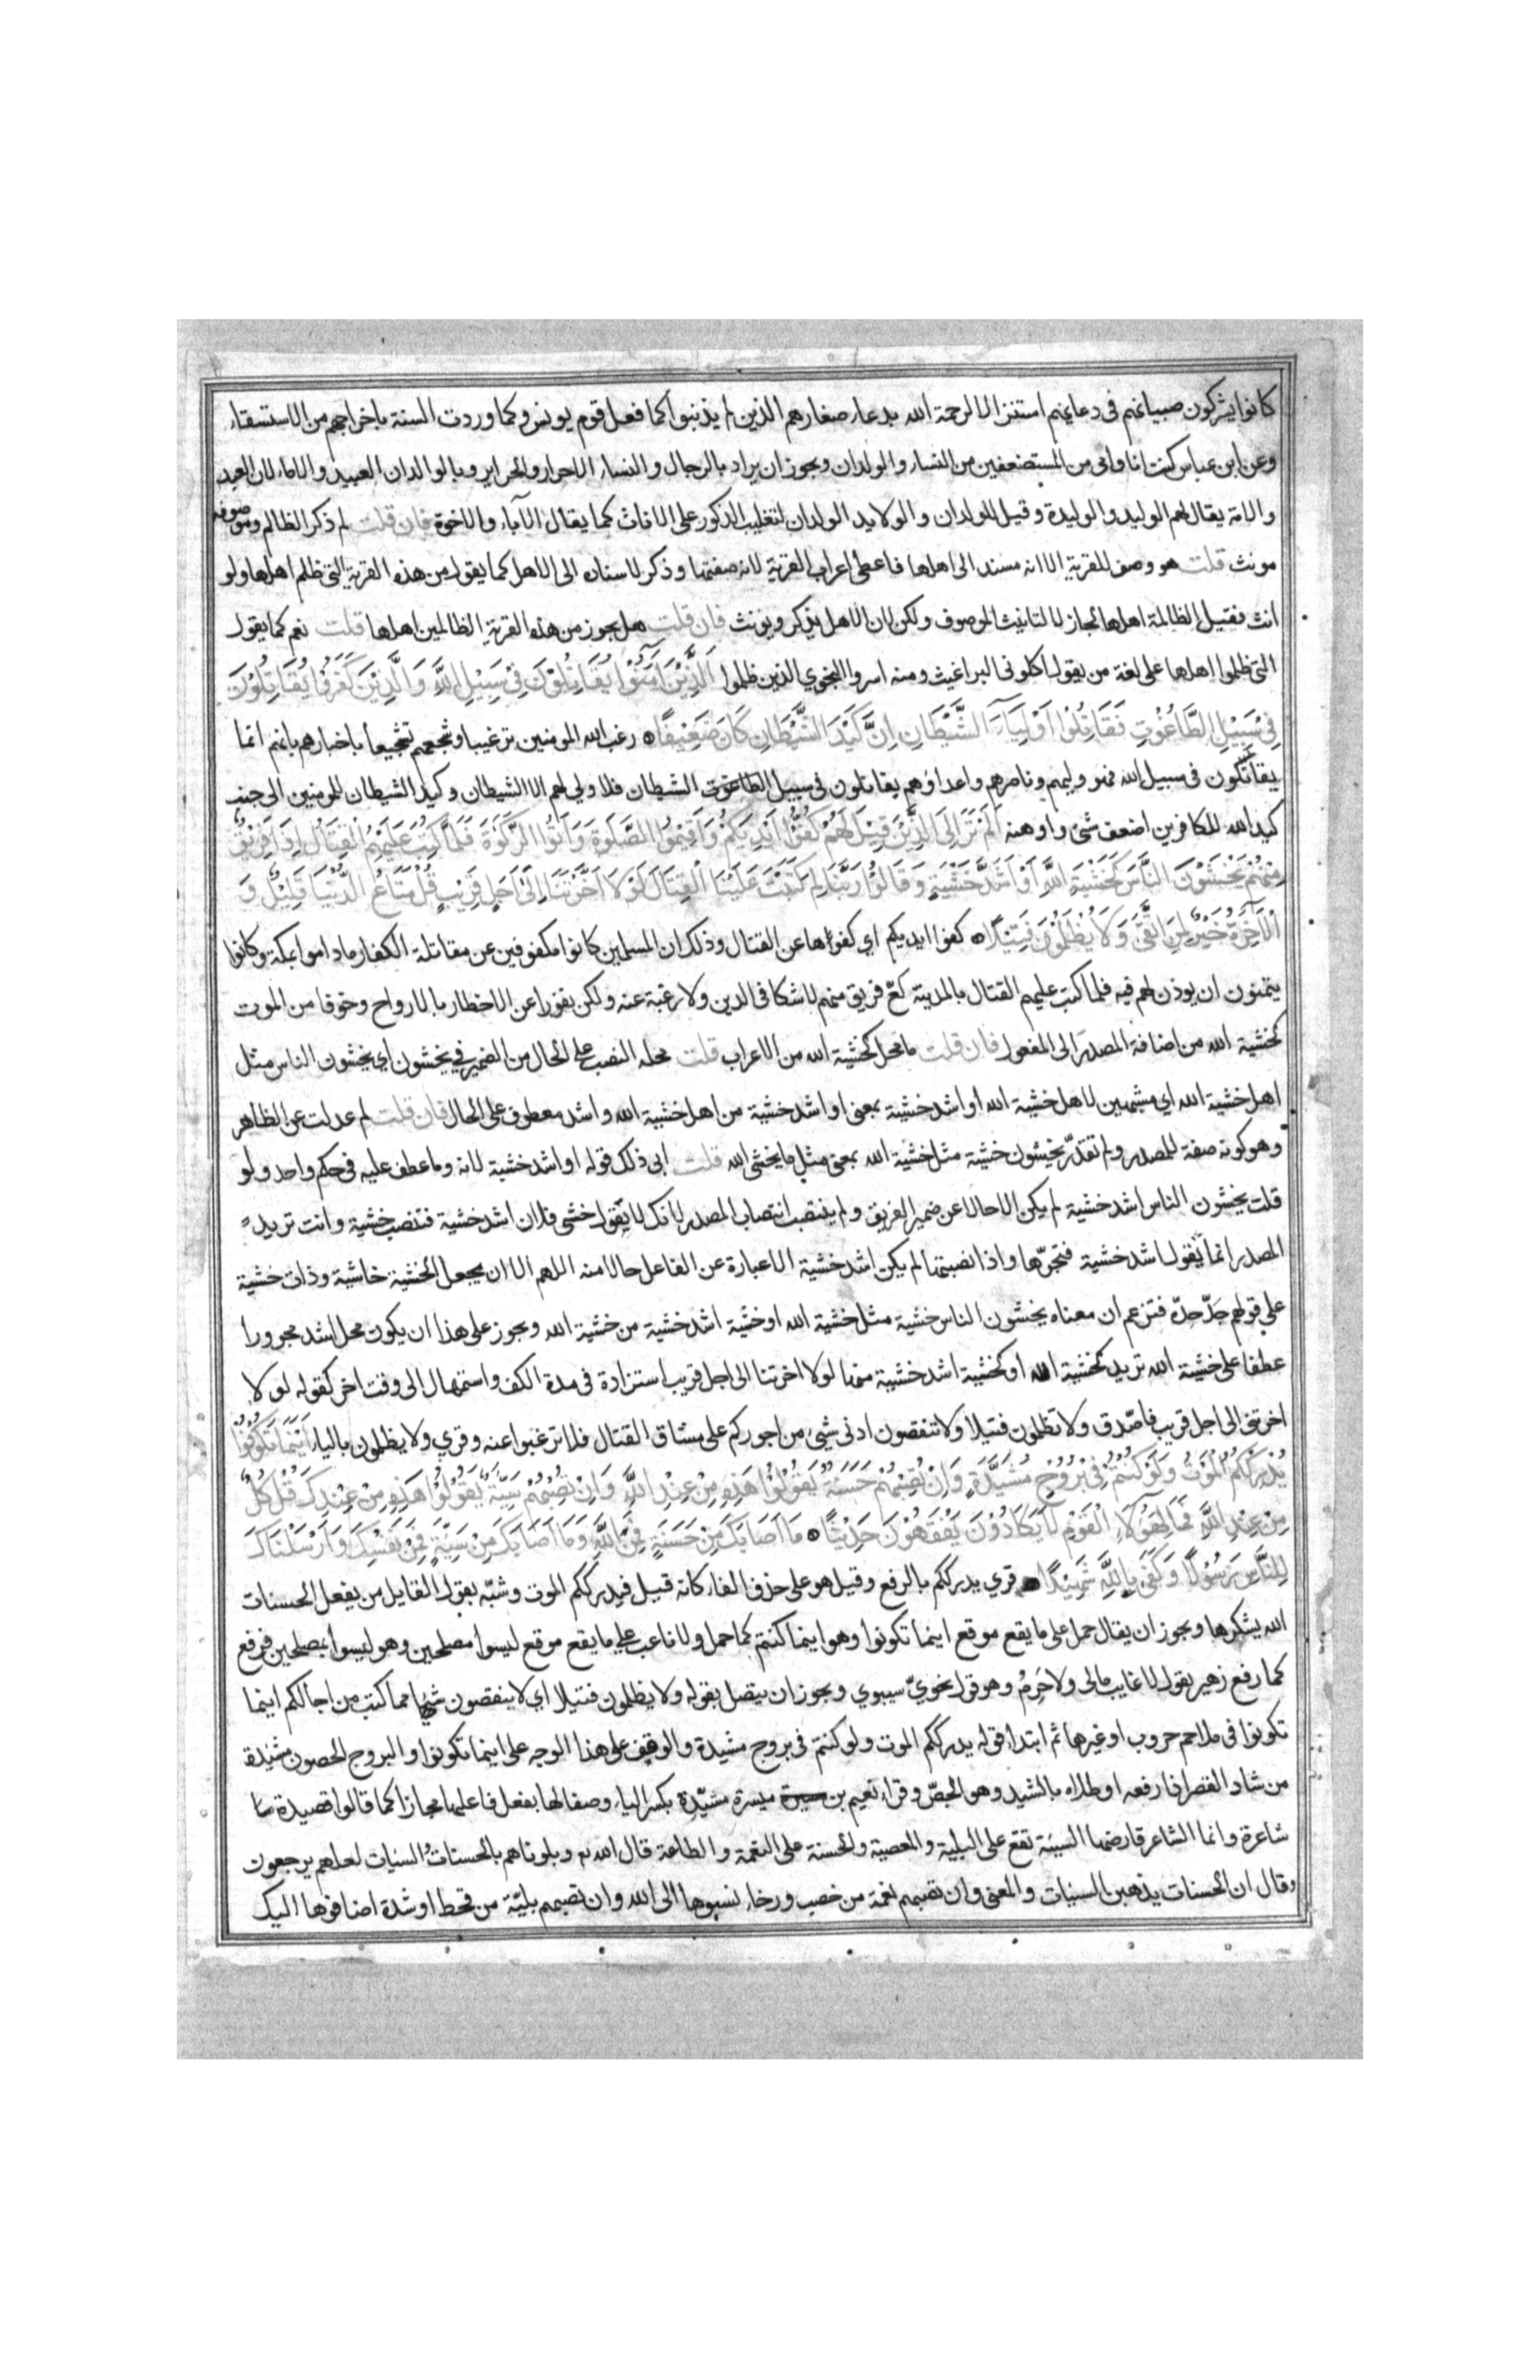 كانوا يشركون صبيانهم في دعائهم استنزالا لرحمة الله بدعاء صغارهم الذين لم يذنبوا كما فعل قوم يونس وكما وردت السنة باخراجهم من الاستسقاء
وعن ابن عباس كنت انا وامي من المستضعفين من النساء والولدان ويجوز ان يراد بالرجال والنساء الاحرار والحراير وبالوالدان العبيد والاماء لان العبد
والامة يقال لهم الوليد والوليدة وقيل للولدان والولايد الولدان لتغليب الذكور على الاناث كما يقال الآباء والاخوة فان قلت لم ذكر الظالم وموصوفه
مونث قلت هو وصف للقرية الا انه مسند الى اهلها فاعطى اعراب القرية لانه صفتها وذكر لاسناده الى الاهل كما يقول من هذه القرية التي ظلم اهلها ولو
انث فقيل الظالمة اهلها لجاز لا لتانيث الموصوف ولكن لان الاهل يذكر ويونث فان قلت هل يجوز من هذه القرية الظالمين اهلها قلت نعم كما يقول
التي ظلموا اهلها على لغة من يقول اكلوني البراغيث ومنه اسروا النجوي الذين ظلموا اَلَّذِيْنَ آمَنُوْا يُقَاتِلُوْنَ فِيْ سَبِيْلِ اللَّهِ وَالَّذِيْنَ كَفَرُوْا يُقَاتِلُوْنَ
فِيْ سَبِيْلِ الطَّاغُوْتِ فَقَاتِلُوْا اَوْلِيَآءَ الشَّيْطَانِ اِنَّ كَيْدَ الشَّيْطَانِ كَانَ ضَعِيْفًا رغب الله المومنين ترغيبا وشجعهم تشجيعا باخبارهم بانهم انما
يقاتلون في سبيل الله فهو وليهم وناصرهم واعداؤهم يقاتلون في سبيل الطاغوت الشيطان فلا ولي لهم الا الشيطان وكيد الشيطان للمومنين الى جنب
كيد الله للكافرين اضعف شئ واوهنه اَلَمْ تَرَ اِلَى الَّذِيْنَ قِيْلَ لَهُمْ كُفُّوْا اَيْدِيَكُمْ وَاَقِيْمُوا الصَّلٰوةَ وَآتُوا الزَّكٰوةَ فَلَمَّا كُتِبَ عَلَيْهِمُ الْقِتَالُ اِذَا فَرِيْقٌ
مِنْهُمْ يَخْشَوْنَ النَّاسَ كَخَشْيَةِ اللَّهِ اَوْ اَشَدَّ خَشْيَةٍ وَقَالُوْا رَبَّنَا لِمَ كَتَبْتَ عَلَيْنَا الْقِتَالَ لَوْلَا اَخَّرْتَنَا اِلٰى اَجَلٍ قَرِيْبٍ قُلْ مَتَاعُ الدُّنْيَا قَلِيْلٌ وَ
الْآخِرَةُ خَيْرٌ لِمَنِ اتَّقَى وَلَا يُظْلَمُوْنَ فَتِيْلًا كفوا ايديكم اي كفوها عن القتال وذلك ان المسلمين كانوا مكفوفين عن مقاتلة الكفار ماداموا بمكة وكانوا
يتمنون ان يوذن لهم فيه فلما كتب عليهم القتال بالمدينة كعّ فريق منهم لا شكا في الدين ولا رغبة عنه ولكن نفورا عن الاخطار بالارواح وخوفا من الموت
كخشية الله من اضافة المصدر الى المفعول فان قلت ما محل كخشية الله من الاعراب قلت محله النصب على الحال من الضمير في يخشون اي يخشون الناس مثل
اهل خشية الله اي مشبهين لاهل خشية الله او اشد خشية بمعنى او اشد خشية من اهل خشية الله واشد معطوف على الحال فان قلت لم عدلت عن الظاهر
وهو كونه صفة للمصدر ولم تقدّر يخشون خشية مثل خشية الله بمعنى مثل ما يخشى الله قلت ابى ذلك قوله او اشد خشية لانه وما عطف عليه في حكم واحد ولو
قلت يخشون الناس اشد خشية لم يكن الا حالا عن ضمير الفريق ولم ينتصب انتصاب المصدر لانك لا يقول خشى فلان اشد خشية فتنصب خشية وانت تريد
المصدر انما يقول اشد خشية فتجرّها واذا نصبتها لم يكن اشد خشية الا عبارة عن الفاعل حالا منه اللهم الا ان يجعل الخشية خاشية وذات خشية
على قولهم جدّ جدّه فتزعم ان معناه يخشون الناس خشية مثل خشية الله او خشية اشد خشية من خشية الله ويجوز على هذا ان يكون محل اشد مجرورا
عطفا على خشية الله تريد كخشية الله او كخشية اشد خشية منها لولا اخرتنا الى اجل قريب استزادة في مدة الكف واستمهال الى وقت اخر كقوله لولا
اخرتني الى اجل قريب فاصّدق ولا تظلمون فتيلا ولا تنقصون ادنى شيئ من اجوركم على مشاق القتال فلا ترغبوا عنه وقري ولا يظلمون بالياء اَيْنَمَا تَكُوْنُوْا
يُدْرِكْكُمُ الْمَوْتُ وَلَوْ كُنْتُمْ فِيْ بُرُوْجٍ مُشَيَّدَةٍ وَاِنْ تُصِبْهُمْ حَسَنَةٌ يَقُوْلُوْا هَذِهِ مِنْ عِنْدِ اللَّهِ وَاِنْ تُصِبْهُمْ سَيِّئَةٌ يَقُوْلُوْا هَذِهِ مِنْ عِنْدِكَ قُلْ كُلٌّ
مِنْ عِنْدِ اللَّهِ فَمَالِ هَؤُلَآءِ الْقَوْمِ لَا يَكَادُوْنَ يَفْقَهُوْنَ حَدِيْثًا مَا اَصَابَكَ مِنْ حَسَنَةٍ فَمِنَ اللَّهِ وَمَا اَصَابَكَ مِنْ سَيِّئَةٍ فَمِنْ نَفْسِكَ وَاَرْسَلْنَاكَ
لِلنَّاسِ رَسُوْلًا وَكَفَى بِاللَّهِ شَهِيْدًا قري يدرككم بالرفع وقيل هو على حذف الفاء كانه قيل فيدرككم الموت وشبّه بقول القايل من يفعل الحسنات
الله يشكرها ويجوز ان يقال حمل على ما يقع موقع اينما تكونوا وهو اينما كنتم كما حمل ولا ناعب على ما يقع موقع ليسوا مصلحين وهو ليسوا بمصلحين فرفع
كما رفع زهير يقول لا غايب مالى ولا حَرِمُ وهو قول نحويّ سيبوي ويجوز ان يتصل بقوله ولا يظلمون فتيلا اي لا ينقصون شيئا مما كتب من اجالكم اينما
تكونوا في ملاحم حروب او غيرها ثم ابتدا قوله يدرككم الموت ولو كنتم في بروج مشيدة والوقف على هذا الوجه على اينما تكونوا والبروج الحصون مشيدة
من شاد القصر اذا رفعه او طلاه بالشيد وهو الجصّ وقراء نعيم بن ميسرة مشيّدة بكسر الياء وصفا لها بفعل فاعلها مجازا كما قالوا قصيدة
شاعرة وانما الشاعر قارضها السيئة تقع على البلية والمعصية والحسنة على النعمة والطاعة قال الله تع وبلوناهم بالحسنات والسيات لعلهم يرجعون
وقال ان الحسنات يذهبن السيئات والمعنى وان تصبهم نعمة من خصب ورخاء نسبوها الى الله وان تصبهم بليّة من قحط او شدة اضافوها اليك